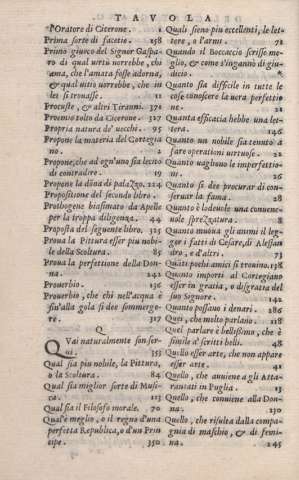 TAVOLA
l'Oratore di Cicerone. 1
Prima sorte di facetie. 258
Primo giuoco del Signor Gaspa-
ro di qual uirtù uorrebbe, chi
ama, che l'amata fosse adorna,
& qual uitio uorrebbe, che in
lei si trouasse.
Procuste, & altri Tiranni. 371
Proemio tolto da Cicerone. 327
Propria natura de' uecchi. 95
Propone la materia del Cortegia
no.
Propone, che ad ogn'uno sia lecito
di contradire. 19
Propone la diina di palazzo. 224
Propositione del secondo libro.
Prothogene biasimato da Apelle
per la troppa diligenza. 44
Proposta del seguente libro. 325
Proua la Pittura esser piu nobi-
le della Scoltura. 85
Proua la perfettione della Don-
na. 242
Prouerbio. 156
Prouerbio, che chi nell'acqua è
fin'alla gola si dee sommerge-
re. 312
Q
QVai naturalmente son ser-
ui. 353
Qual sia piu nobile, la Pittura,
o la Scoltura. 84
Qual sia miglior sorte di Musi-
ca. 113
Qual sia il Filosofo morale. 70
Qual'è meglio, o il regno d'una
perfetta Republica, o d'un Prin
cipe. 350
Quali sieno piu eccellenti, le let-
tere, o l'armi. 72
Quando il Boccaccio scrisse me-
glio, & come s'ingannò di giu-
dicio.
Quanto sia difficile in tutte le
cose conoscere la uera perfettio
ne. 21
Quanta efficacia hebbe una let-
tera. 146
Quanto un nobile sia tenuto à
fare operationi uirtuose. 22
Quanto uaghouo le imperfettio-
ni. 26
Quanto si dee procurar di con-
seruar la fama. 28
Quanto è lodeuole una conuene-
uole sprezzatura. 8
Quanto muoua gli animi il leg-
gor i fatti di Cesare, di Alessan
dro, e d'altri. 73
Quati pochi amici si trouino. 138
Quanto importi al Cortegiano
esser in gratia, o disgratia del
suo Signore. 142
Quanto possano i denari. 286
Quei, che molto parlano. 118
Quel parlare è bellissimo, che è
simile a' scritti belli. 48
Quello esser arte, che non appare
esser arte. 41
Quello, che auuiene a gli Atta-
rantati in Puglia. 13
Quello, che conuiene alla Don-
na. 230
Quello, che risulta dalla compa-
gnia di maschio, & di femi-
na. 245